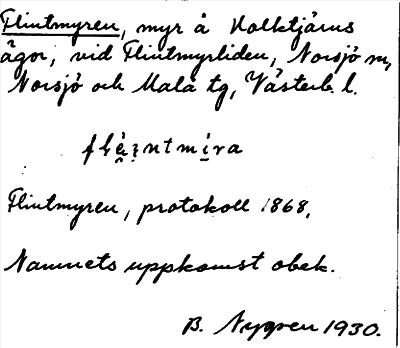 Flintmyren, myr å Holktjärns
ägor, vid Flintmyrliden, Norsjö sn,
Norsjö och Malå tg, Västerb. l.
Flintmyren, protokoll 1868,
Namnets uppkomst obek.
B. Nygren 1930.